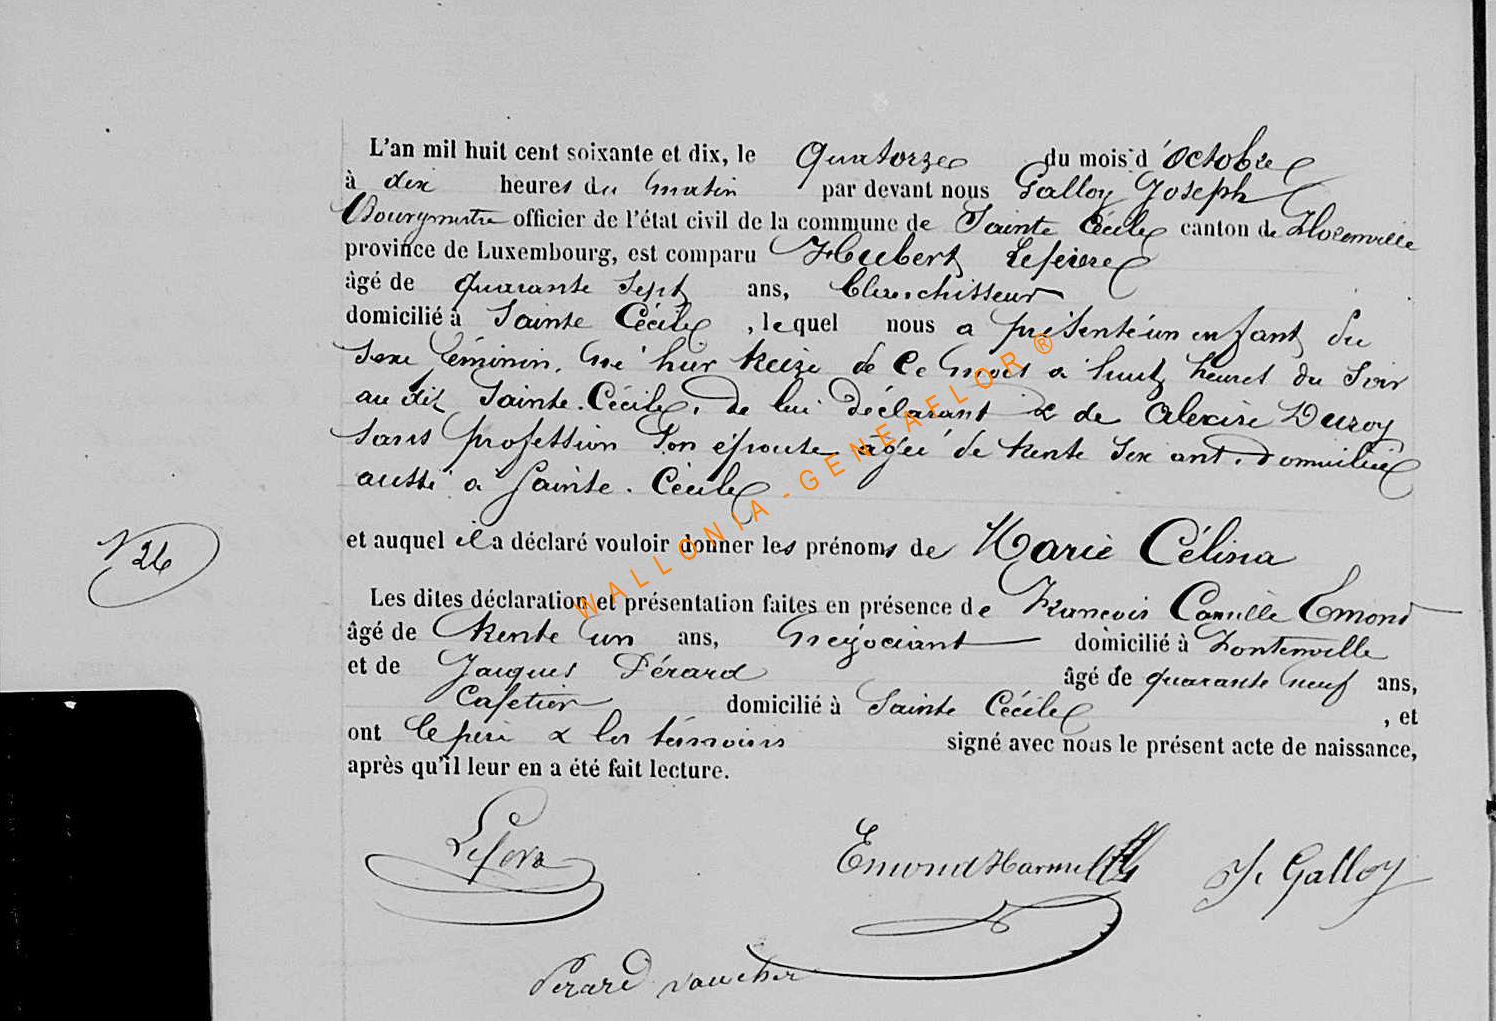 L'an mil huit cent soixante et dix, le Quatorze du mois d'Octobre
à dix heures du matin par devant nous Galloy Joseph
Bourgmestre officier de l'état civil de la commune de Sainte Cécile canton de Florenville
province de Luxembourg, est comparu Hubert Lefèvre
âgé de quarante sept ans, blanchisseur
domicilié à Sainte Cécile, lequel nous a présenté un enfant du
sexe féminin, né hier treize de ce mois à huit heures du soir
au dit Sainte-Cécile, de lui déclarant & de Alexise Duroy
sans profession son épouse agée de trente six ans, domiciliée
aussi à Sainte-Cécile
et auquel il a déclaré vouloir donner les prénoms de Marie Célina
N 26
Les dites déclaration et présentation faites en présence de François Camille Emond
âgé de trente un ans, négociant domicilié à Fontenoille
et de Jacques Pérard âgé de quarante neuf ans,
Cafetier domicilié à Sainte Cécile, et
ont le père & les témoins signé avec nous le présent acte de naissance,
après qu'il leur en a été fait lecture.
Emond J. Galloy
Perard Vaucher
WALLONIA - GENEAFLOR ®